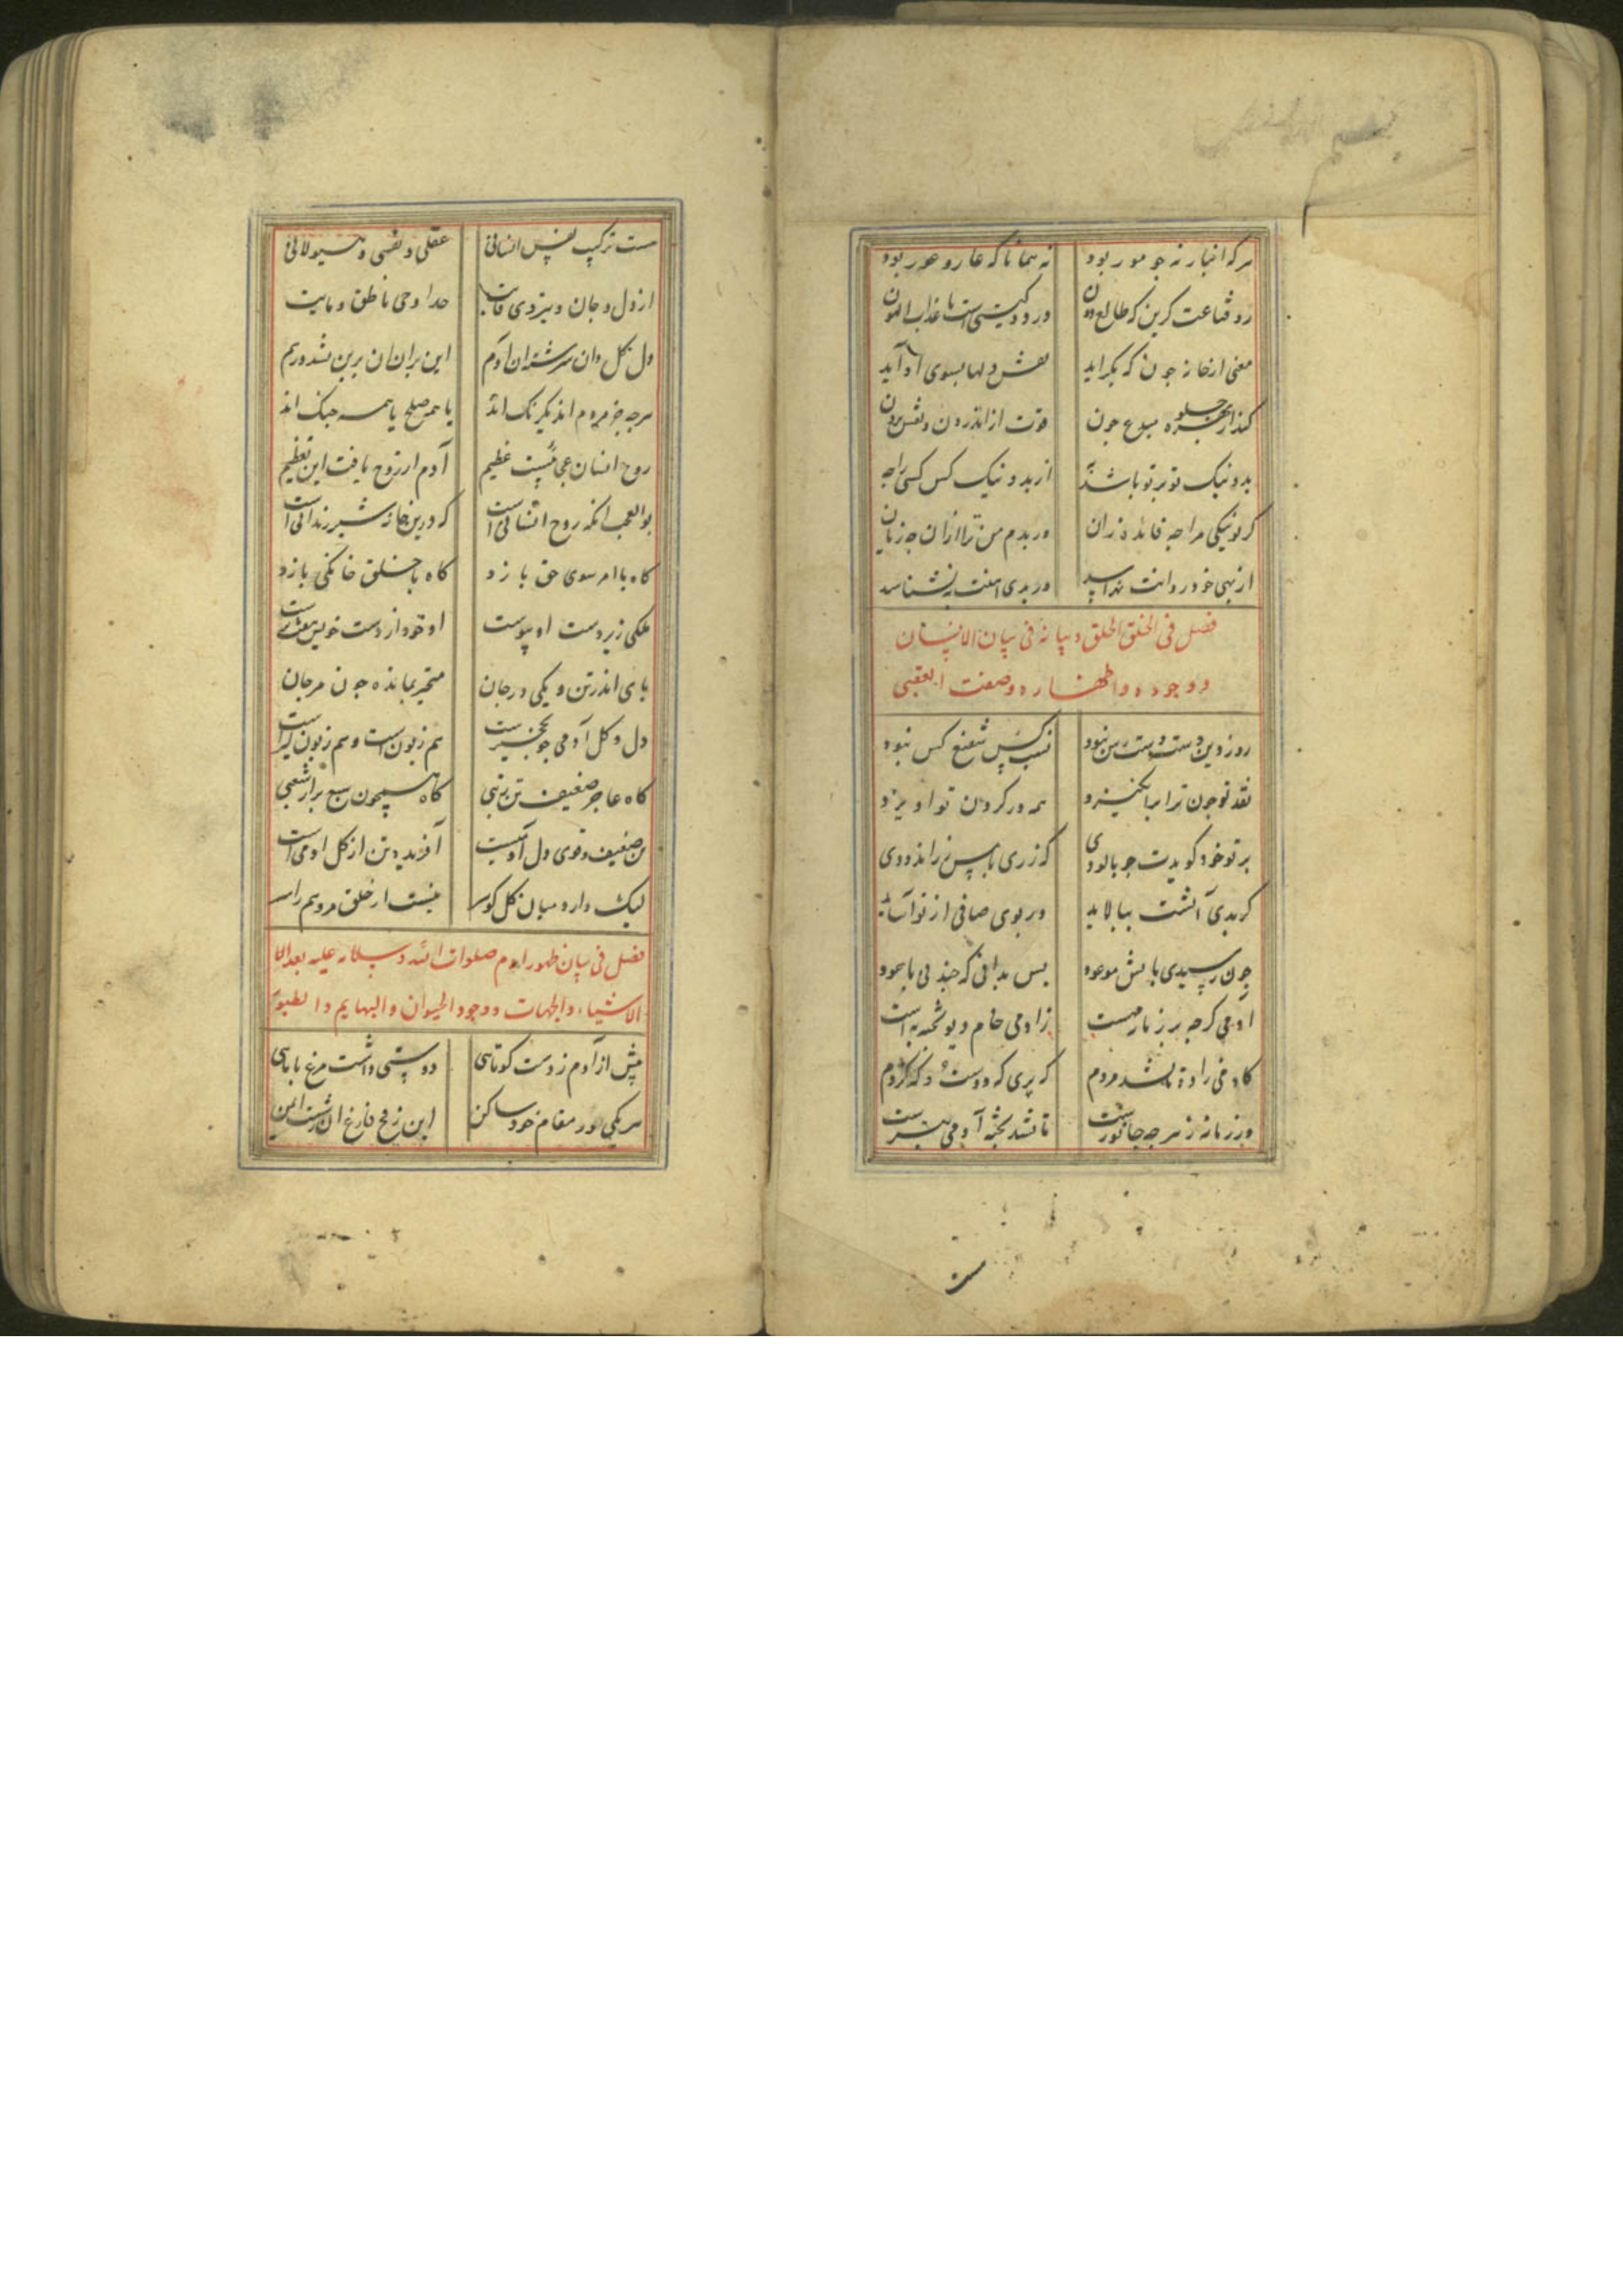 هرکه انبارنه چو مور بود نه همانا که عار و عور بود
رو قناعت کزین که طالع دون در دو کیتی است با عذاب الهون
معنی از خانه چون که بکراید نقش دلها بسوی او آید
کند از بهره مبدع چون قوت از اندرون و نقش برون
بد و نیک تو بر تو باشد از بد و نیک کس کسی را چه
کر تو نیکی مرا چه فایده زان ور بدم من ترا از ان چه زیان
ور بدی
فصل فی الخلق الخلق و بیانه فی بیان الانسان
و وجوده واظهاره وصفت العقبی
روز دین دست دست رس نبود نسب کس شفیع کس نبود
نقد تو چون ترا برانکیزد همه در کردن تو اویزد
بر تو خود کویدت چو بالودی که زری یا مس زراندودی
کر بدی آتشت ببالاید ور بوی صافی از تو آساید
چون رسیدی باتش موعود بس بدانی که جند نی یا عود
آدمی کرچه بر زمانه مهست زادمی خام دیو پخته به است
که پری که دوست که کژدم
در زمانه ز هر چه جانورست تا نشد پخته آدمی بترست
هست ترکیب نفس انسانی عقلی و نفسی و هیولانی
از دل و جان و حد او حی ناطق و مایت
دل بکل دان سرشته ان آدم این بران ان برین نشد درهم
هرچه جز مردم اند یکرنک اند یا همه صلح یا همه جنک اند
روح انسان عجائبیست عظیم آدم از روح یافت این تعظیم
بوالعجب انکه روح انسانی است که درین خانه شیر زندانی است
کاه با امر سوی حق یازد کاه با خلق خانکی بازد
ملکی زیر دست او پیوست او خود از دست خویش
پای اندر تن و یکی در جان متحیر بمانده جون مرجان
دل و کل آدمی هم زبون است و هم زبون کیر است
کاه عاجز ضعیف تن ز تبی کاه همچون سبع برار شغبی
تن ضعیف و قوی دل آدمیست آفریده تن از کل ادمی است
لیک دارد میان کل کوهر نیست از خلق مردم
فصل فی بیان ظهور ادم صلوات الله و سلامه علیه بعد الا
الاشیاء والجهات و وجود الحیوان والبهایم والطیور
پیش از آدم ز دست کوتاهی دوستی داشت مرغ با ماهی
هر یکی در مقام خود ساکن این ز فخ فارغ ان ز شست ایمن